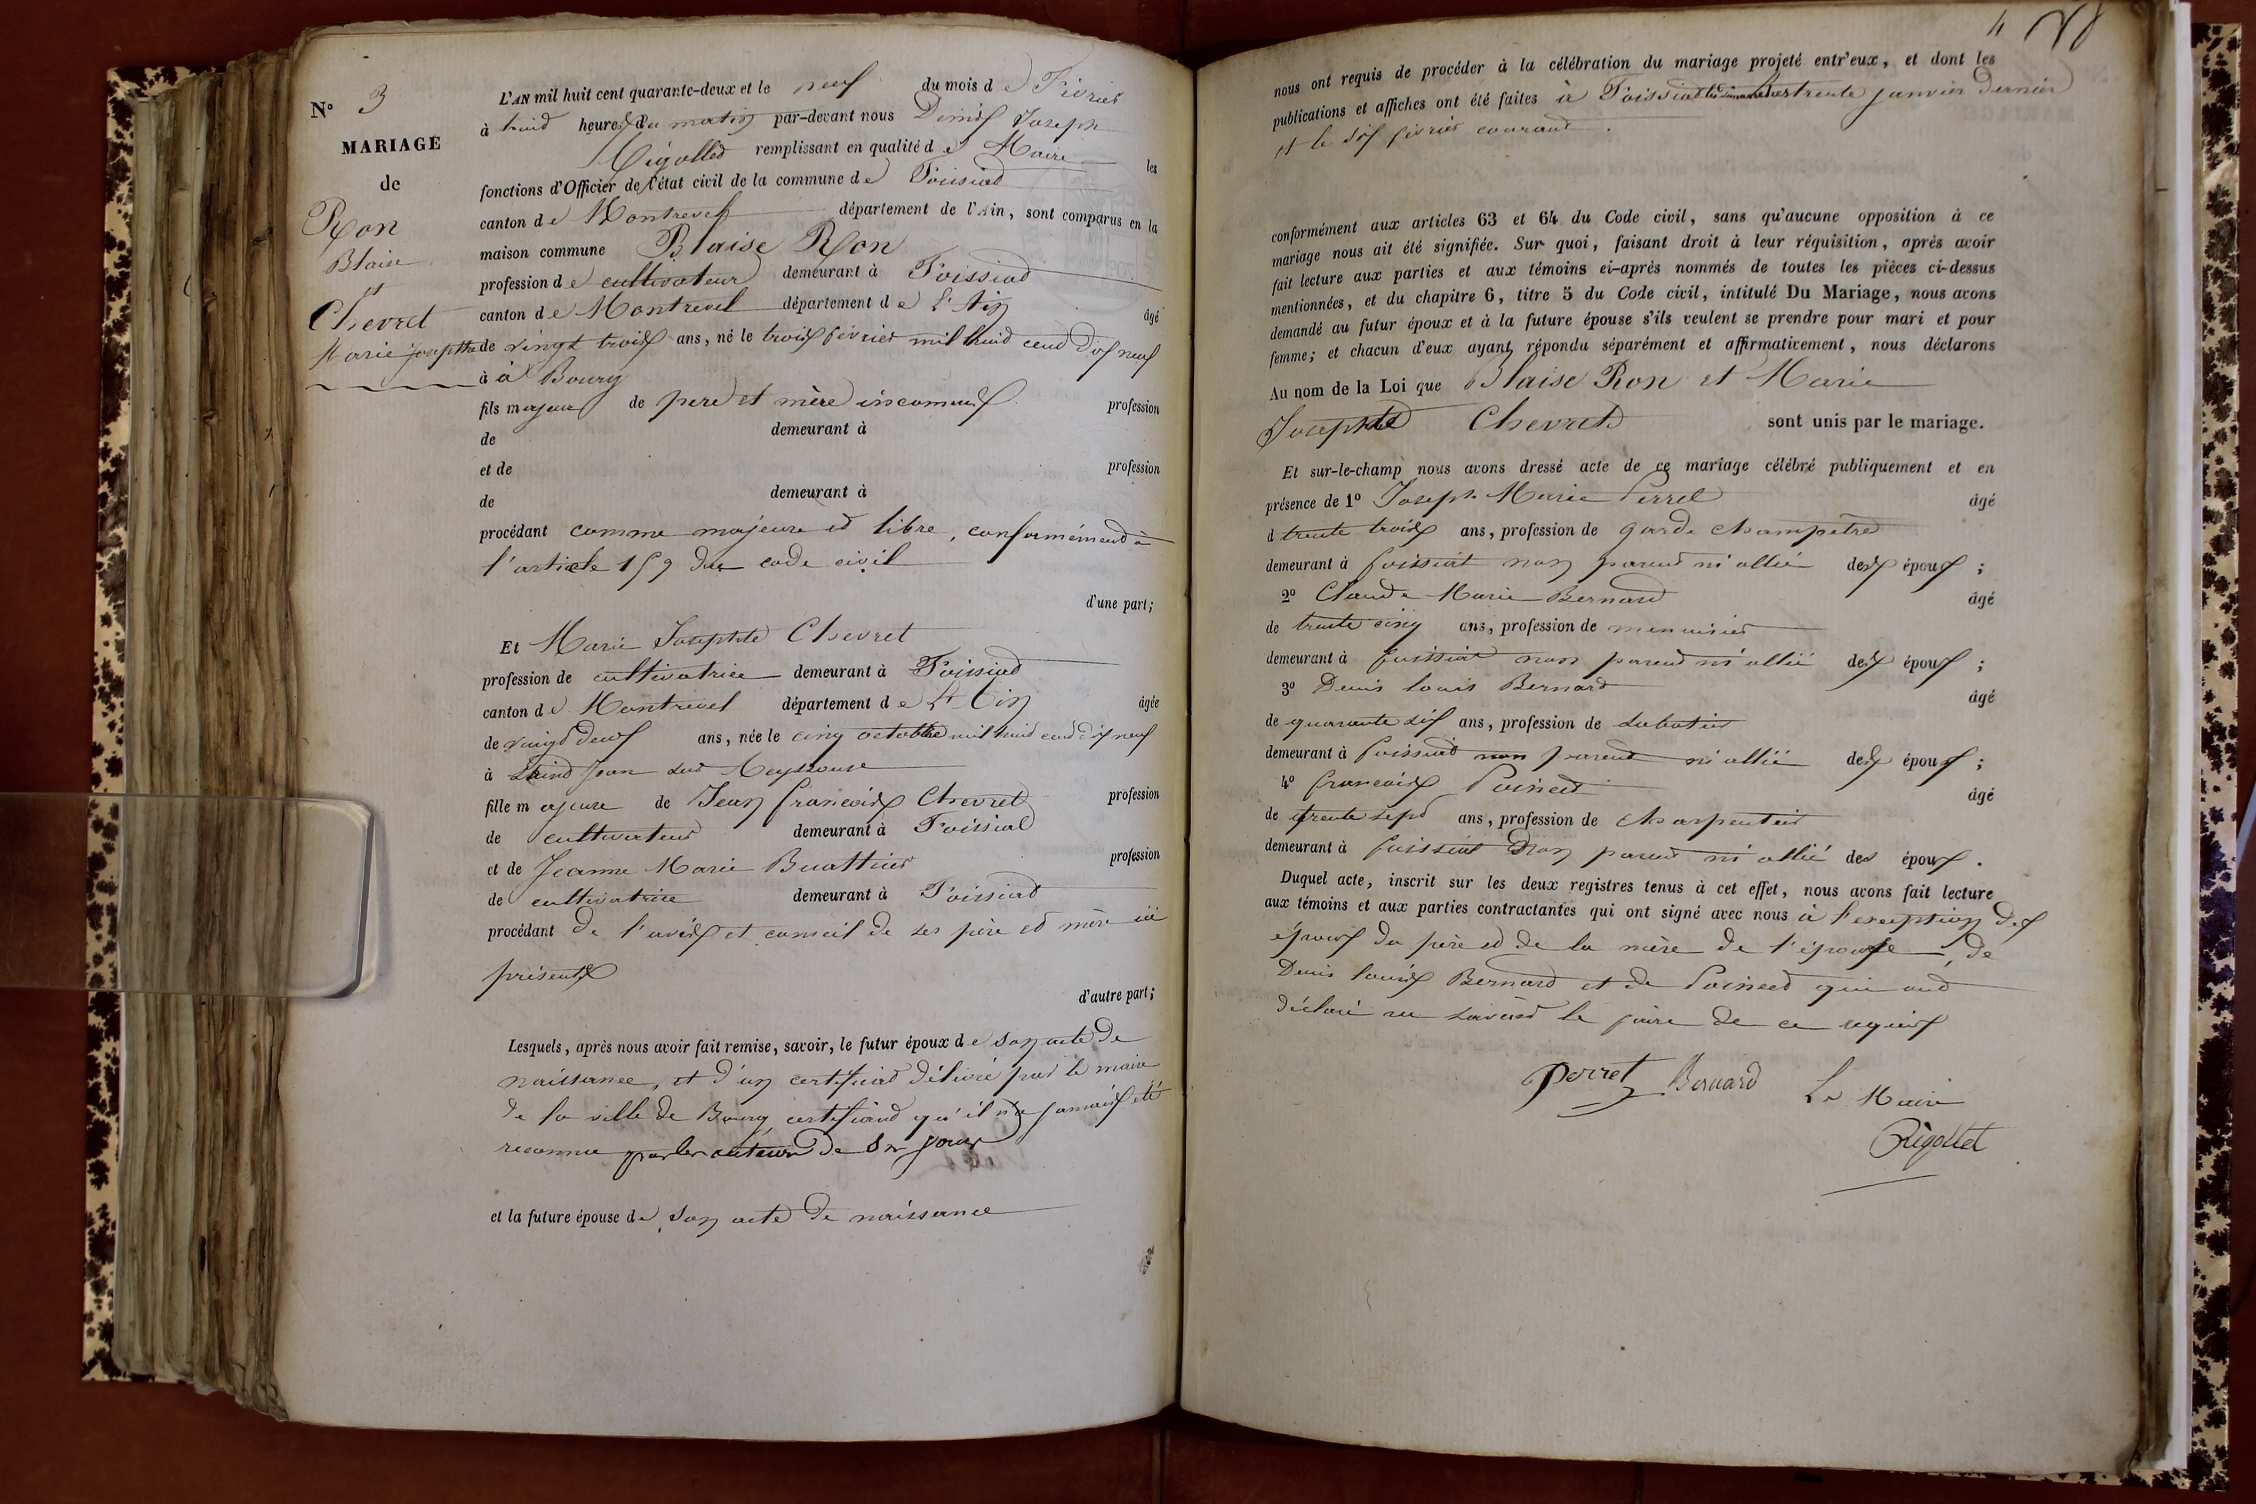 N° 3
MARIAGE
de
Ron
Blaise
et
Chevret
Marie josephte
L'AN mil huit cent quarante-deux et le neuf du mois de Février
à huit heures du matin par-devant nous Denis Joseph
Rigollet remplissant en qualité de Maire les
fonctions d'Officier de l'état civil de la commune de Foissiat
canton de Montrevel département de l'Ain, sont comparus en la
maison commune Blaise Ron
profession de cultivateur demeurant à Foissiat
canton de Montrevel département de l'Ain âgé
de vingt trois ans, né le trois février mil huit cent dix neuf
à à Bourg
fils majeur de père et mère inconnus profession
de demeurant à
et de profession
de demeurant à
procédant comme majeure et libre, conformément à
l'article 159 du code civil
d'une part;
Et Marie Josephte Chevret
profession de cultivatrice demeurant à Foissiat
canton de Montrevel département de l'Ain âgée
de vingt deux ans, née le cinq octobre mil huit cent dix neuf
à Saint Jean sur Reyssouze
fille majeure de Jean françois Chevret profession
de cultivateur demeurant à Foissiat
et de Jeanne Marie Buattier profession
de cultivatrice demeurant à Foissiat
procédant de l'avis et conseil de ses père et mère ici
présents
d'autre part;
Lesquels, après nous avoir fait remise, savoir, le futur époux de son acte de
naissance, et d'un certificat délivré par le maire
de la ville de Bourg, certifiant qu'il n'a jamais été
reconnu par les auteurs de ses jours
et la future épouse de son acte de naissance
4
nous ont requis de procéder à la célébration du mariage projeté entr'eux, et dont les
publications et affiches ont été faites à Foissiat les dimanches trente janvier dernier
et le six février courant.
conformément aux articles 63 et 64 du Code civil, sans qu'aucune opposition à ce
mariage nous ait été signifiée. Sur quoi, faisant droit à leur réquisition, après avoir
fait lecture aux parties et aux témoins ci-après nommés de toutes les pièces ci-dessus
mentionnées, et du chapitre 6, titre 5 du Code civil, intitulé Du Mariage, nous avons
demandé au futur époux et à la future épouse s'ils veulent se prendre pour mari et pour
femme; et chacun d'eux ayant répondu séparément et affirmativement, nous déclarons
Au nom de la Loi que Blaise Ron et Marie
Josephte Chevret sont unis par le mariage.
Et sur-le-champ nous avons dressé acte de ce mariage célébré publiquement et en
présence de 1° Joseph Marie Perret âgé
d trente trois ans, profession de garde champêtre
demeurant à foissiat non parent ni allié des époux;
2° Claude Marie Bernard âgé
de trente cinq ans, profession de menuisier
demeurant à foissiat non parent ni allié des époux;
3° Denis louis Bernard âgé
de quarante six ans, profession de sabotier
demeurant à foissiat non parent ni allié des époux;
4° françois Poincet âgé
de trente sept ans, profession de charpentier
demeurant à foissiat non parent ni allié des époux.
Duquel acte, inscrit sur les deux registres tenus à cet effet, nous avons fait lecture
aux témoins et aux parties contractantes qui ont signé avec nous à l'exception des
époux du père et de la mère de l'épouse, de
Denis louis Bernard et de Poincet qui ont
déclaré ne savoir le faire de ce requis
Perret Bernard Le Maire
Rigollet